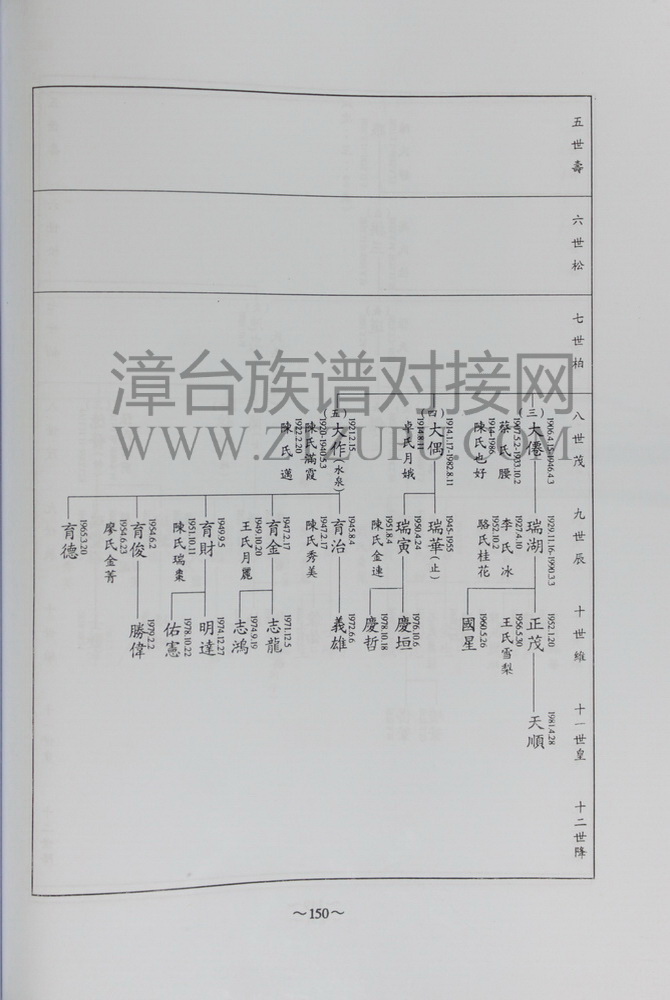 五世壽
六世松
七世柏
八世茂
九世辰
十世維
十一世皇
十二世降
(三)大僊
1906.4.15-1946.4.3
蔡氏腰
1907.5.2-1933.10.2
陳氏也好
1914-1986
瑞湖
1929.11.16-1990.3.3
李氏冰
1927.4.10
駱氏桂花
1952.10.2
正茂
1952.1.20
王氏雪梨
1956.5.30
國星
1960.5.26
天順
1981.4.28
(四)大偶
1914.1.17-1982.8.11
卓氏月娥
1914.8.11
瑞華(止)
1945-1955
瑞寅
1950.4.24
陳氏金連
1951.8.4
慶垣
1976.10.6
慶哲
1978.10.18
(五)大作(水泉)
1921.2.15
陳氏滿霞
1920-1940.5.3
陳氏邁
1922.2.20
育治
1945.8.4
陳氏秀美
1947.2.17
義雄
1972.6.6
育金
1947.2.17
王氏月麗
1949.10.20
志龍
1971.12.5
志鴻
1974.9.19
育財
1949.9.5
陳氏瑞棗
1951.10.11
明達
1974.12.27
佑憲
1978.10.22
育俊
1954.6.2
廖氏金菁
1954.6.23
勝偉
1979.2.2
育德
1965.3.20
漳台族谱对接网
～150～